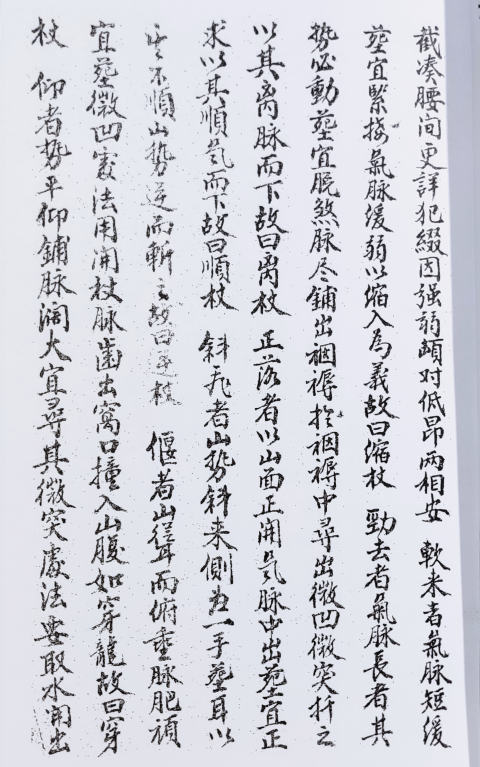 截凑腰间更詳犯綴因强弱顛对低昂两相安 軟来者氣脉短缓
塟宜緊接氣脉缓弱以缩入為義故曰缩杖 勁去者氣脉長者其
势必動塟宜脱煞脉尽鋪出裀褥扵裀褥中尋出微凹微突扦之
以其离脉而下故曰离杖 正落者以山面正開氣脉中出塟宜正
求以其順氣而下故曰順杖 斜飛者山势斜来側出一手塟耳以
不順山势逆而斬之故曰逆杖 偃者山聳而俯重脉肥頑
宜塟微凹處法用開杖脉齒出窩口撞入山腹如穿龍故曰穿
杖 仰者势平仰鋪脉濶大宜尋其微突處法要取水開出